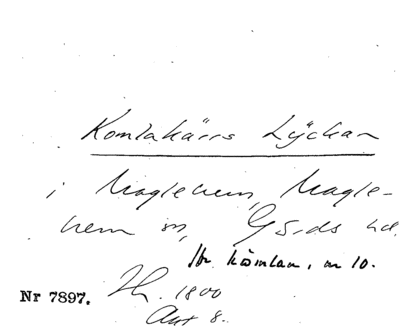 Komlakärrs Lyckan
i Maglehem, Magle-
hem sn, Gärds hd.
Hr Komlan, nr 10.
Nr 7897. 1800
Akt 8.